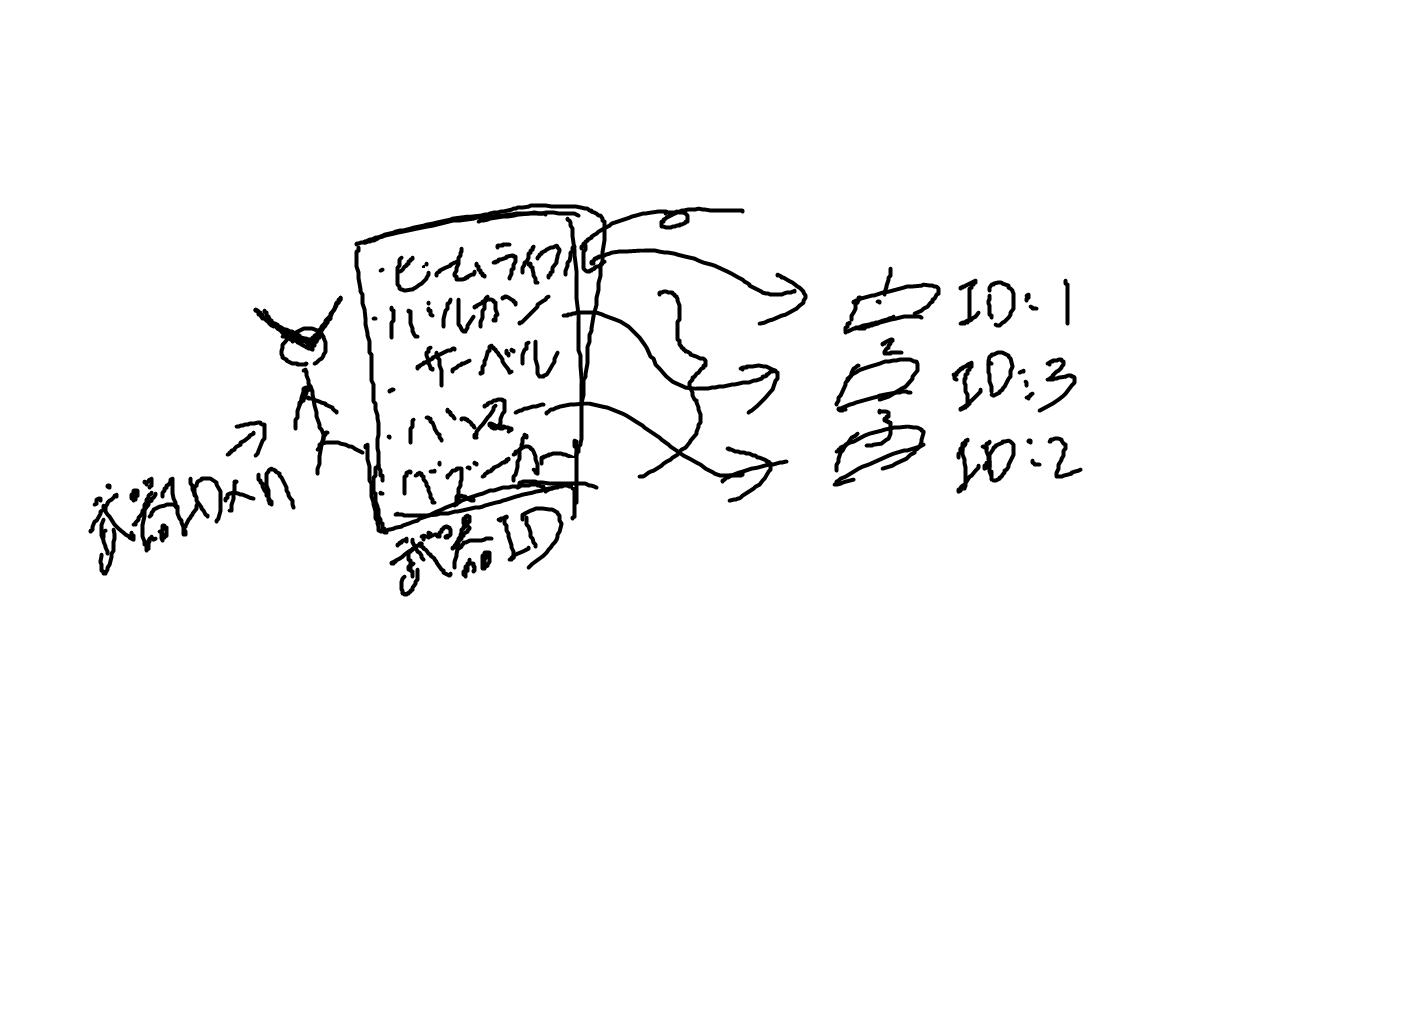 ・ビームライフル
・バルカン
・サーベル
・ハンマー
・バズーカ
武器ID
武器ID×n
1 ID:1
2 ID:3
3 ID:2